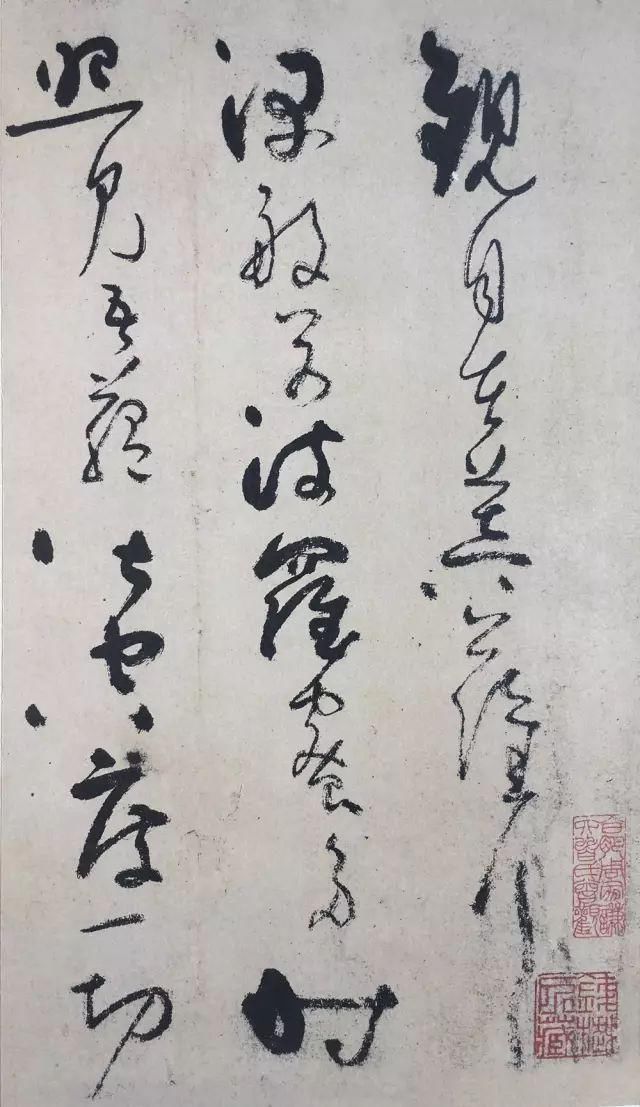 觀自在菩薩行
深般若波羅蜜多時
照見五蘊皆空度一切